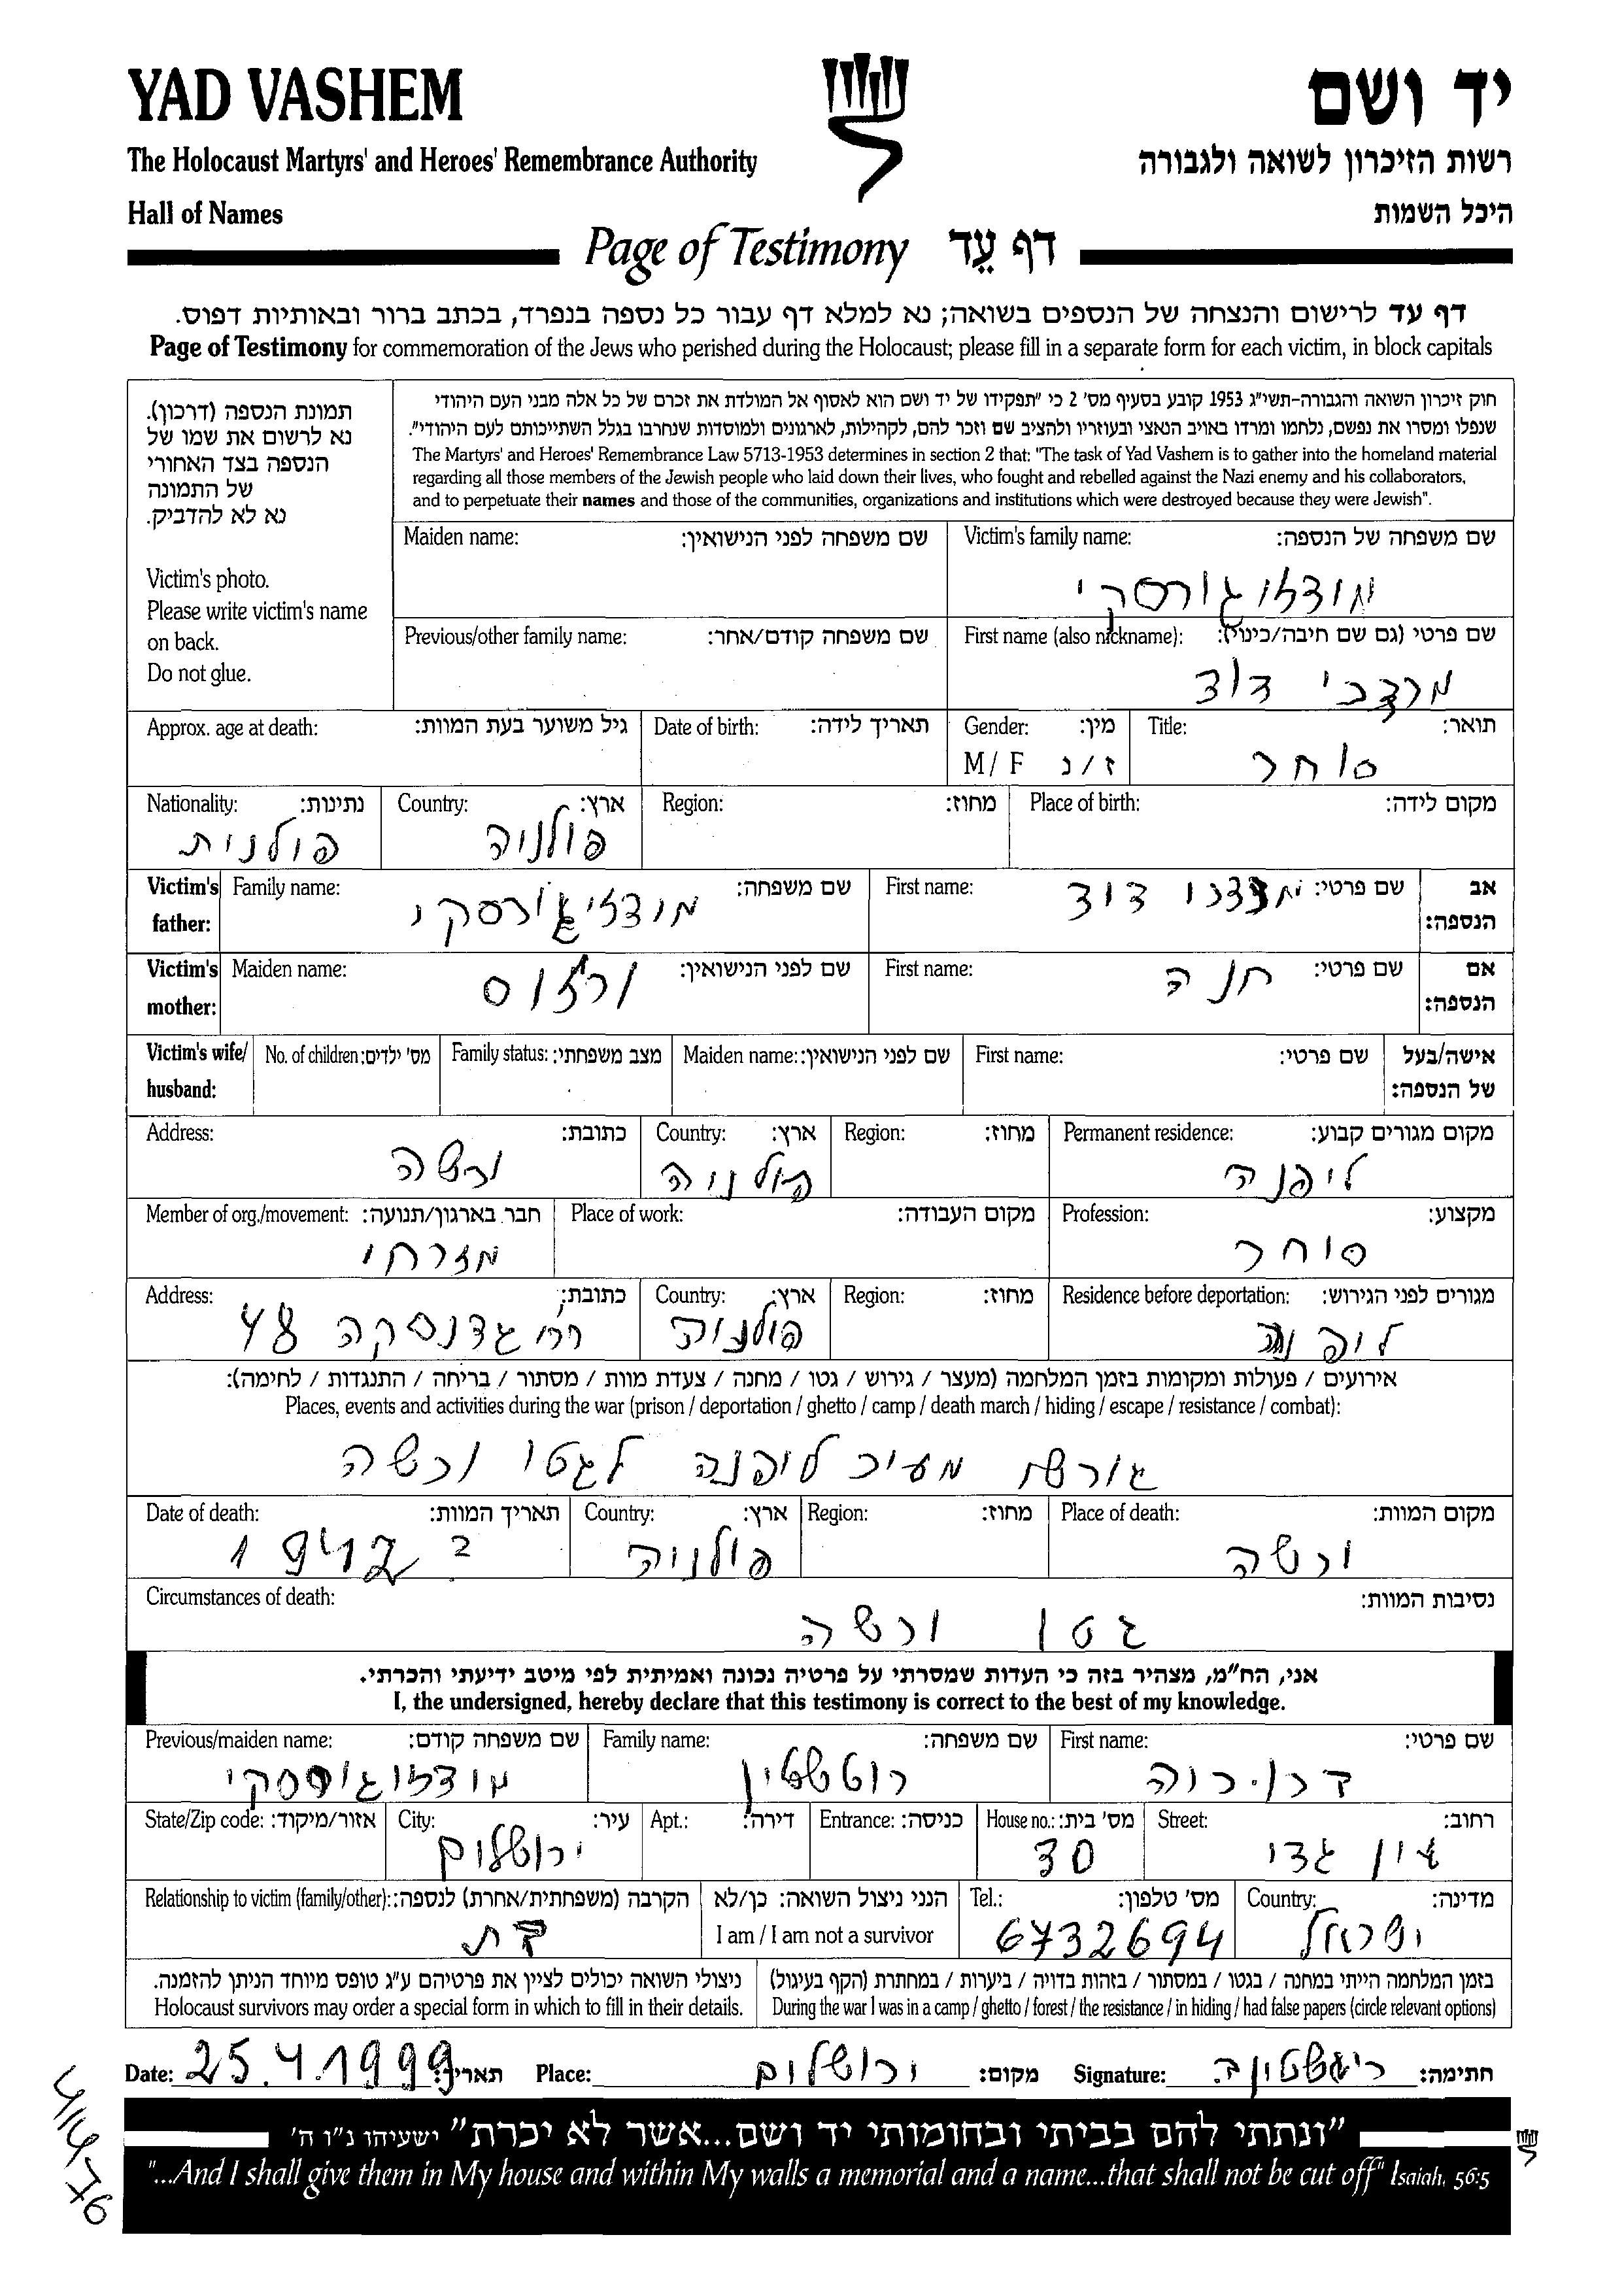 YAD VASHEM
יד ושם
The Holocaust Martyrs' and Heroes' Remembrance Authority
רשות הזיכרון לשואה ולגבורה
Hall of Names
היכל השמות
Page of Testimony דף עֵד
דף עד לרישום והנצחה של הנספים בשואה; נא למלא דף עבור כל נספה בנפרד, בכתב ברור ובאותיות דפוס.
Page of Testimony for commemoration of the Jews who perished during the Holocaust; please fill in a separate form for each victim, in block capitals
תמונת הנספה (דרכון).
נא לרשום את שמו של
הנספה בצד האחורי
של התמונה
נא לא להדביק.
Victim's photo.
Please write victim's name
on back.
Do not glue.
חוק זיכרון השואה והגבורה-תשי"ג 1953 קובע בסעיף מס' 2 כי "תפקידו של יד ושם הוא לאסוף אל המולדת את זכרם של כל אלה מבני העם היהודי
שנפלו ומסרו את נפשם, נלחמו ומרדו באויב הנאצי ובעוזריו ולהציב שם וזכר להם, לקהילות, לארגונים ולמוסדות שנחרבו בגלל השתייכותם לעם היהודי".
The Martyrs' and Heroes' Remembrance Law 5713-1953 determines in section 2 that: "The task of Yad Vashem is to gather into the homeland material
regarding all those members of the Jewish people who laid down their lives, who fought and rebelled against the Nazi enemy and his collaborators,
and to perpetuate their names and those of the communities, organizations and institutions which were destroyed because they were Jewish".
Maiden name: שם משפחה לפני הנישואין: Victim's family name: שם משפחה של הנספה:
מודזגורסקי
Previous/other family name: שם משפחה קודם/אחר: First name (also nickname): שם פרטי (גם שם חיבה/כינוי):
מרדכי דוד
Approx. age at death: גיל משוער בעת המוות: Date of birth: תאריך לידה: Gender: מין: Title: תואר:
M / F ז / נ סוחר
Nationality: נתינות: Country: ארץ: Region: מחוז: Place of birth: מקום לידה:
פולנית פולניה
Victim's father: Family name: שם משפחה: First name: שם פרטי: אב הנספה:
מודזיגורסקי דוד
Victim's mother: Maiden name: שם לפני הנישואין: First name: שם פרטי: אם הנספה:
חנה
Victim's wife/ husband: No. of children: מס' ילדים: Family status: מצב משפחתי: Maiden name: שם לפני הנישואין: First name: שם פרטי: אישה/בעל של הנספה:
Address: כתובת: Country: ארץ: Region: מחוז: Permanent residence: מקום מגורים קבוע:
ורשה פולניה ליפנה
Member of org./movement: חבר בארגון/תנועה: Place of work: מקום העבודה: Profession: מקצוע:
מזרחי סוחר
Address: כתובת: Country: ארץ: Region: מחוז: Residence before deportation: מגורים לפני הגירוש:
רח' גדנסקה 48 פולניה ליפנה
אירועים / פעולות ומקומות בזמן המלחמה (מעצר / גירוש / גטו / מחנה / צעדת מוות / מסתור / בריחה / התנגדות / לחימה):
Places, events and activities during the war (prison / deportation / ghetto / camp / death march / hiding / escape / resistance / combat):
גורש מעיר ליפנה לגטו ורשה
Date of death: תאריך המוות: Country: ארץ: Region: מחוז: Place of death: מקום המוות:
1942 פולניה ורשה
Circumstances of death: נסיבות המוות:
גטו ורשה
אני, הח"מ, מצהיר בזה כי העדות שמסרתי על פרטיה נכונה ואמיתית לפי מיטב ידיעתי והכרתי.
I, the undersigned, hereby declare that this testimony is correct to the best of my knowledge.
Previous/maiden name: שם משפחה קודם: Family name: שם משפחה: First name: שם פרטי:
מודזגורסקי רוטשטיין
State/Zip code: אזור/מיקוד: City: עיר: Apt.: דירה: Entrance: כניסה: House no.: מס' בית: Street: רחוב:
ירושלים 30 עין גדי
Relationship to victim (family/other): הקרבה (משפחתית/אחרת) לנספה: הנני ניצול השואה: כן/לא Tel.: מס' טלפון: Country: מדינה:
I am / I am not a survivor
6732694 ישראל
ניצולי השואה יכולים לציין את פרטיהם ע"ג טופס מיוחד הניתן להזמנה.
Holocaust survivors may order a special form in which to fill in their details.
בזמן המלחמה הייתי במחנה / בגטו / במסתור / בזהות בדויה / ביערות / במחתרת (הקף בעיגול)
During the war I was in a camp / ghetto / forest / the resistance / in hiding / had false papers (circle relevant options)
Date: 25.4.1999 תאריך: Place: ירושלים מקום: Signature: חתימה:
"ונתתי להם בביתי ובחומותי יד ושם...אשר לא יכרת" ישעיהו נ"ו ה'
"...And I shall give them in My house and within My walls a memorial and a name...that shall not be cut off" Isaiah, 56:5